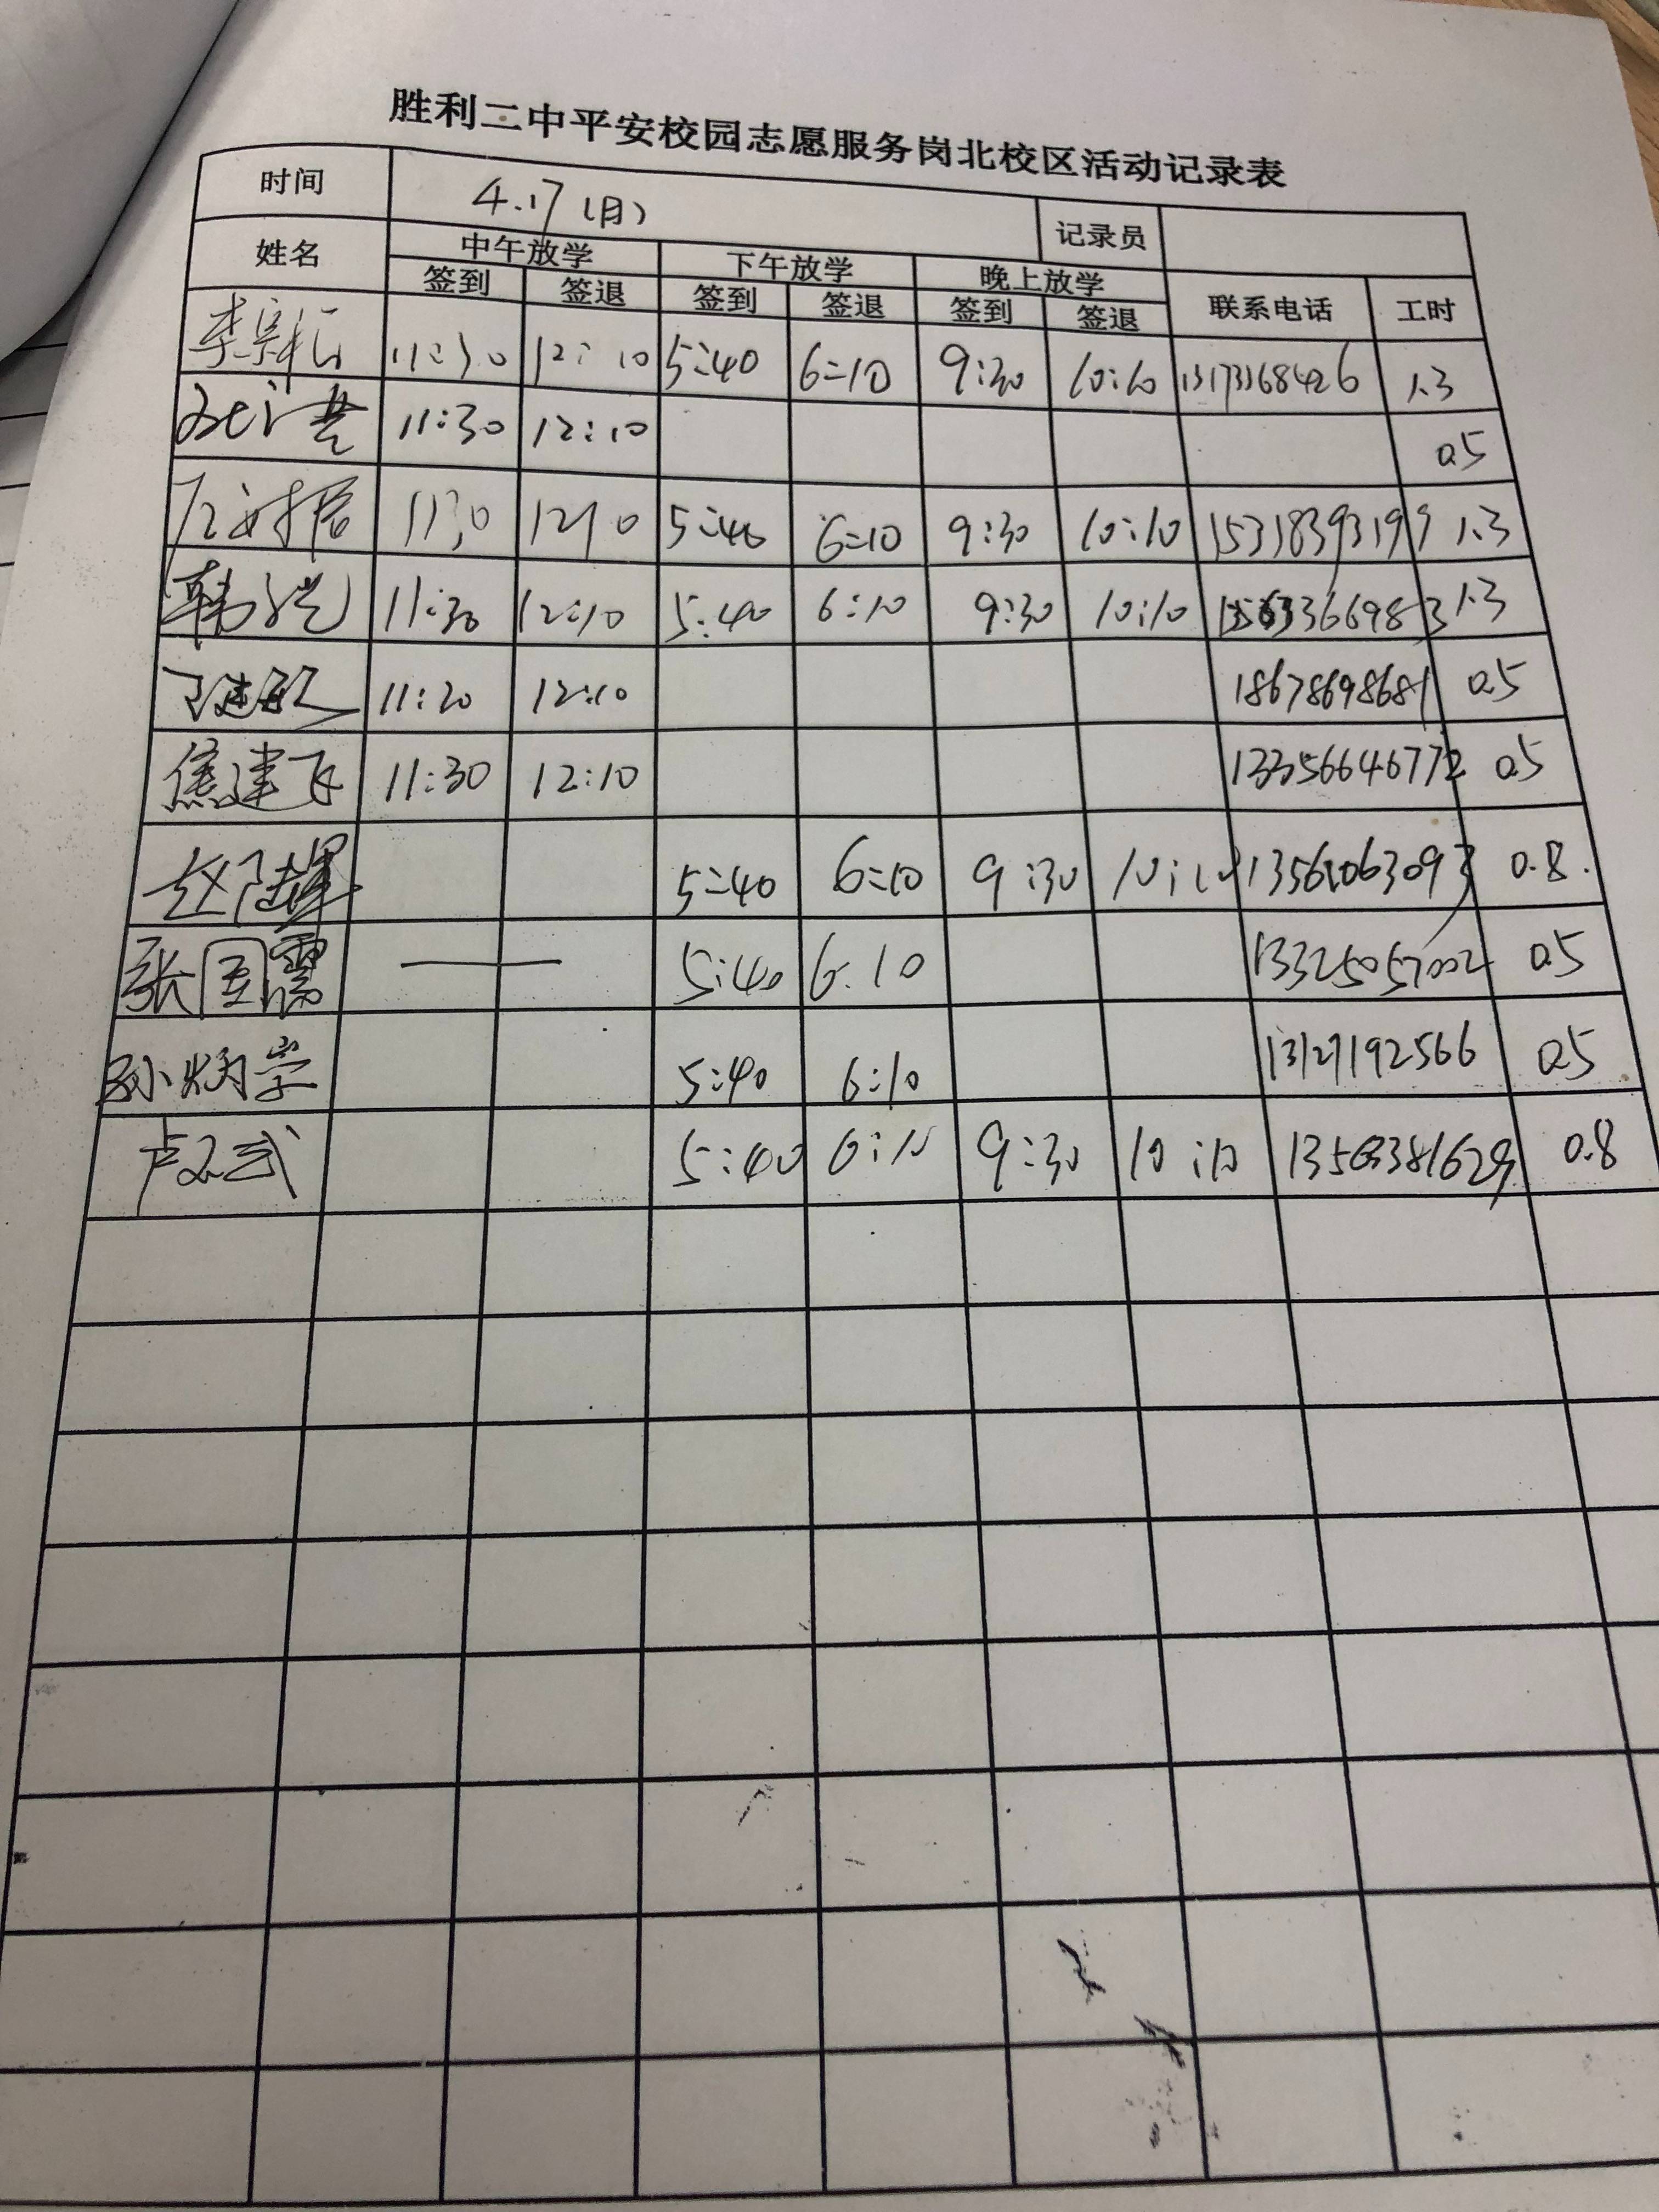 胜利二中平安校园志愿服务岗北校区活动记录表
时间 4.17(月) 记录员
姓名 中午放学 下午放学 晚上放学 联系电话 工时
签到 签退 签到 签退 签到 签退
11:30 12:10 5:40 6:10 9:30 10:10 13173368426 1.3
11:30 12:10 0.5
1130 1210 5:40 6:10 9:30 10:10 15318393199 1.3
韩 11:30 12:10 5:40 6:10 9:30 10:10 1.3
11:20 12:10 18678698681 0.5
焦建飞 11:30 12:10 13356646772 0.5
赵 5:40 6:10 9:30 10:10 13561063093 0.8.
张国霞 — 5:40 6.10 13325057002 0.5
孙炳学 5:40 6:10 13127192566 0.5
卢 5:40 6:10 9:30 10:10 0.8